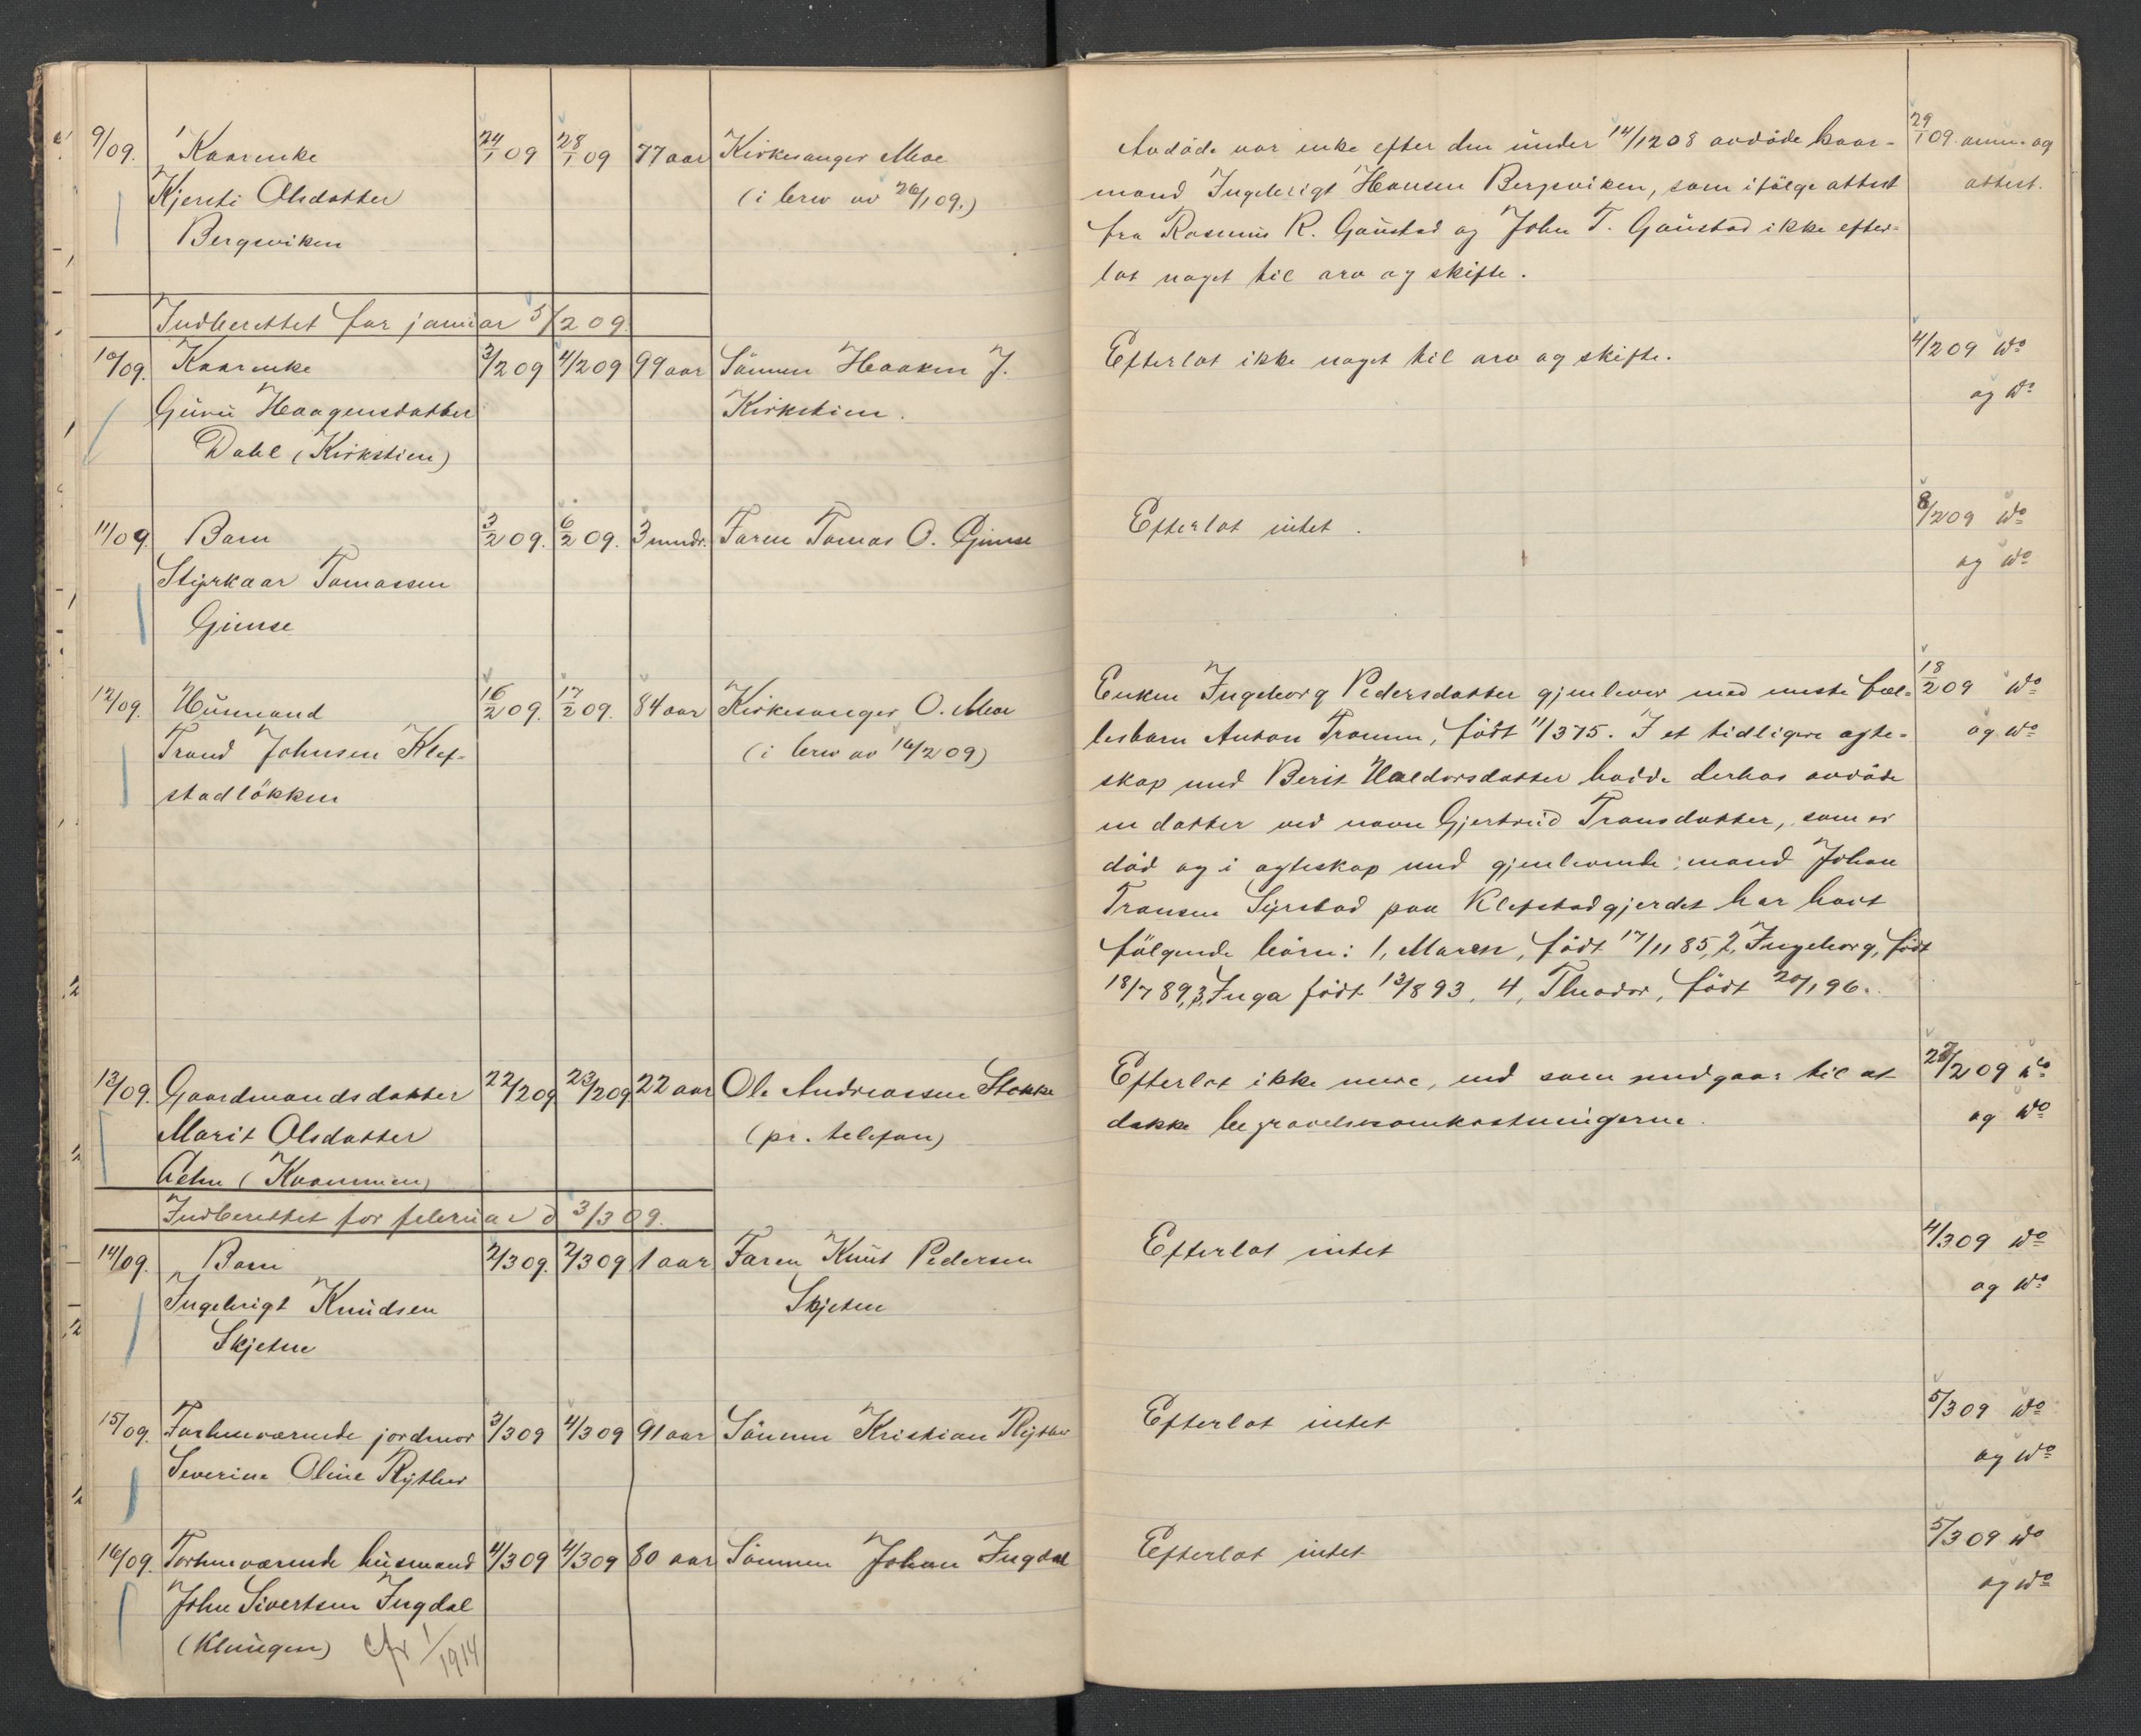 9/09. Kaarenke 24/1 09 28/1 09 77 aar Kirkesanger Moe
Kjersti Olsdatter (i brev av 26/1 09.)
Bergsviken
Avdöde var enke efter den under 14/12 08 avdöde kaar-
mand Ingebrigt Hansen Bergsviken, som ifölge attest
fra Rasmus R. Gaustad og John T. Gaustad ikke efter-
lot noget til arv og skifte.
29/1 09. anm. og
attest.
Indberettet for januar 5/2 09.
10/09. Kaarenke 3/2 09 4/2 09 99 aar Sönnen Haaken J.
Guru Haagensdatter Kirkstien.
Dahl (Kirkstien)
Efterlot ikke noget til arv og skifte.
4/2 09 do
og do
11/09. Barn 3/2 09. 6/2 09. 3 mndr. Faren Tomas O. Gimse
Styrkaar Tomassen
Gimse
Efterlot intet.
8/2 09 do
og do
12/09. Husmand 16/2 09. 17/2 09. 84 aar Kirkesanger O. Moe
Trond Johnsen Klef- (i brev av 16/2 09)
stadlökken
Enken Ingeborg Pedersdatter gjenlever med eneste fæl-
lesbarn Anton Tronsen, födt 11/3 75. I et tidligere egte-
skap med Berit Haldorsdatter hadde derhos avdöde
en datter ved navn Gjertrud Transdatter, som er
död og i egteskap med gjenlevende mand Johan
Transen Syrstad paa Klefstadgjerdet har havt
fölgende börn: 1, Maren, födt 17/11 85, 2, Ingeborg, födt
18/7 89, 3, Inga födt 13/8 93, 4, Theodor, födt 20/1 96.
18/2 09 do
og do
13/09. Gaardmandsdatter 22/2 09 23/2 09 22 aar Ole Andreassen Stokke
Marit Olsdatter (pr. telefon)
Efterlot ikke mere, end som medgaar til at
dække begravelsesomkostningerne.
2/2 09 do
og do
Indberettet for februar d 3/3 09.
14/09. Barn 2/3 09. 2/3 09 1 aar Faren Knut Pedersen
Ingebrigt Knudsen Skjetne
Skjetne
Efterlot intet
4/3 09 do
og do
15/09. Forhenværende jordmor 3/3 09 4/3 09 91 aar Sönnen Kristian Rÿther
Severine Oline Rÿther
Efterlot intet
5/3 09 do
og do
16/09. Forhenværende husmand 4/3 09 4/3 09 80 aar Sönnen Johan Ingdal
John Sivertsen Ingdal
(Klungen) cfr 1/1914
Efterlot intet
5/3 09 do
og do